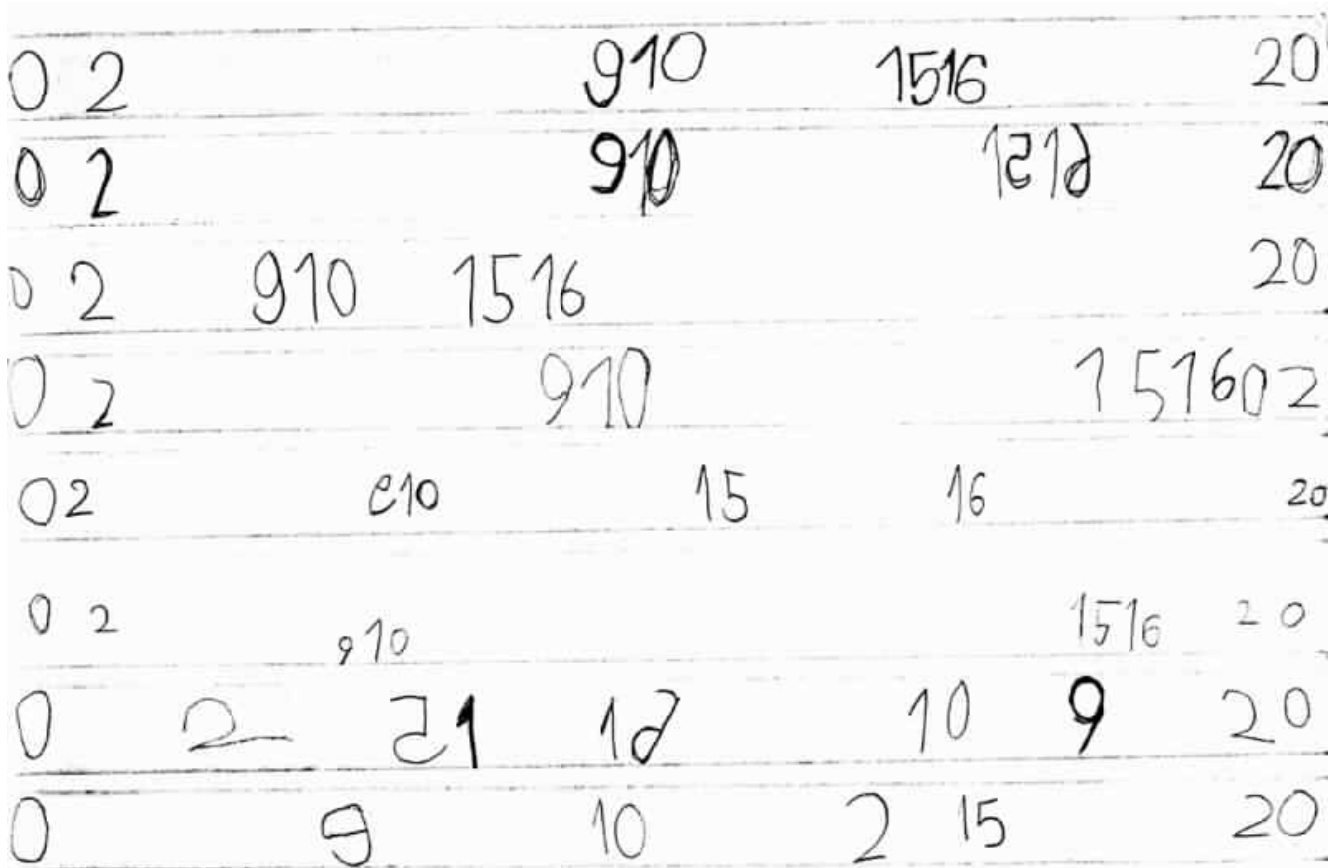 0 2 910 1516 20
0 2 910 1516 20
0 2 910 1516 20
0 2 910 1 51602
02 910 15 16 20
0 2 910 1516 20
0 2 51 16 10 9 20
0 9 10 2 15 20